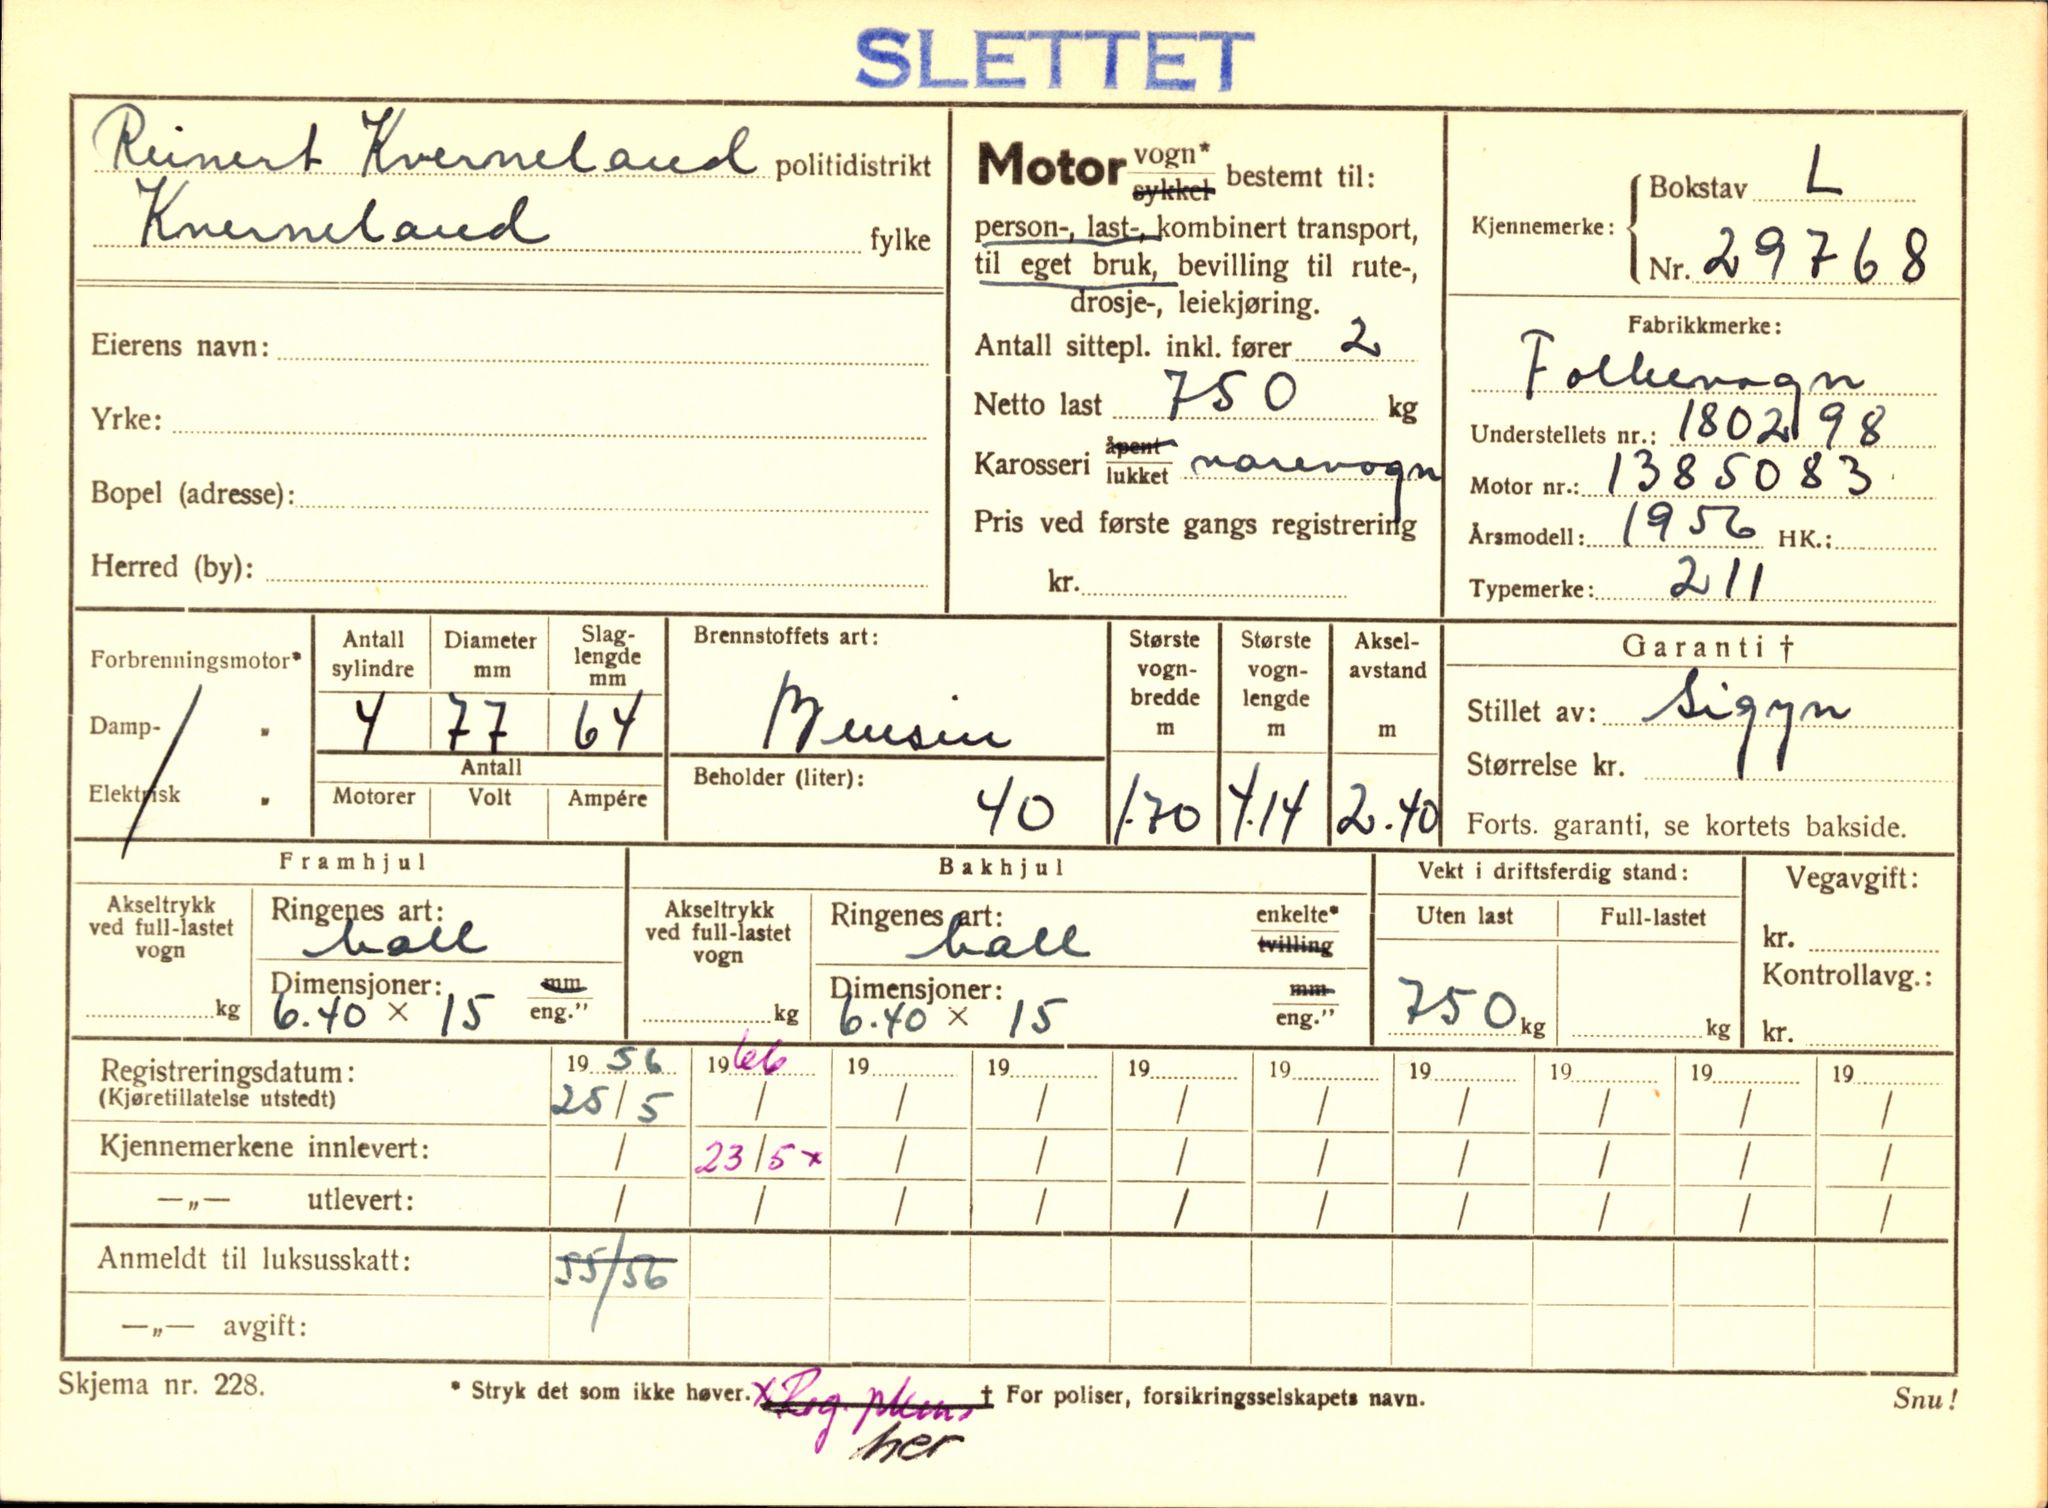 SLETTET
Reinert Kverneland politidistrikt
Kverneland fylke
Eierens navn:
Yrke:
Bopel (adresse):
Herred (by):
Motor vogn* sykkel bestemt til:
person-, last-, kombinert transport,
til eget bruk, bevilling til rute-,
drosje-, leiekjøring.
Antall sittepl. inkl. fører 2
Netto last 750 kg
Karosseri åpent lukket varevogn
Pris ved første gangs registrering
kr.
Kjennemerke: Bokstav L
Nr. 29768
Fabrikkmerke:
Folkevogn
Understellets nr.: 180298
Motor nr.: 1385083
Årsmodell: 1956 HK.:
Typemerke: 211
Forbrenningsmotor*
Damp- „
Elektrisk „
Antall sylindre 4
Diameter mm 77
Slag-lengde mm 64
Antall
Motorer Volt Ampére
Brennstoffets art:
Bensin
Beholder (liter):
40
Største vogn-bredde m 1.70
Største vogn-lengde m 4.14
Aksel-avstand m 2.40
Garanti †
Stillet av: Sigyn
Størrelse kr.
Forts. garanti, se kortets bakside.
Framhjul
Akseltrykk ved full-lastet vogn
kg
Ringenes art:
ball
Dimensjoner: mm
6.40 × 15 eng.”
Bakhjul
Akseltrykk ved full-lastet vogn
kg
Ringenes art: enkelte*
ball tvilling
Dimensjoner: mm
6.40 × 15 eng.”
Vekt i driftsferdig stand:
Uten last Full-lastet
750 kg kg
Vegavgift:
kr.
Kontrollavg.:
kr.
Registreringsdatum: 19 56 19 66 19 19 19 19 19 19 19 19
(Kjøretillatelse utstedt) 25/5 / / / / / / / / /
Kjennemerkene innlevert: / 23/5 x / / / / / / / /
—„— utlevert: / / / / / / / / / /
Anmeldt til luksusskatt: 55/56
—„— avgift:
Skjema nr. 228. * Stryk det som ikke høver. x Reg. † For poliser, forsikringsselskapets navn. Snu!
her